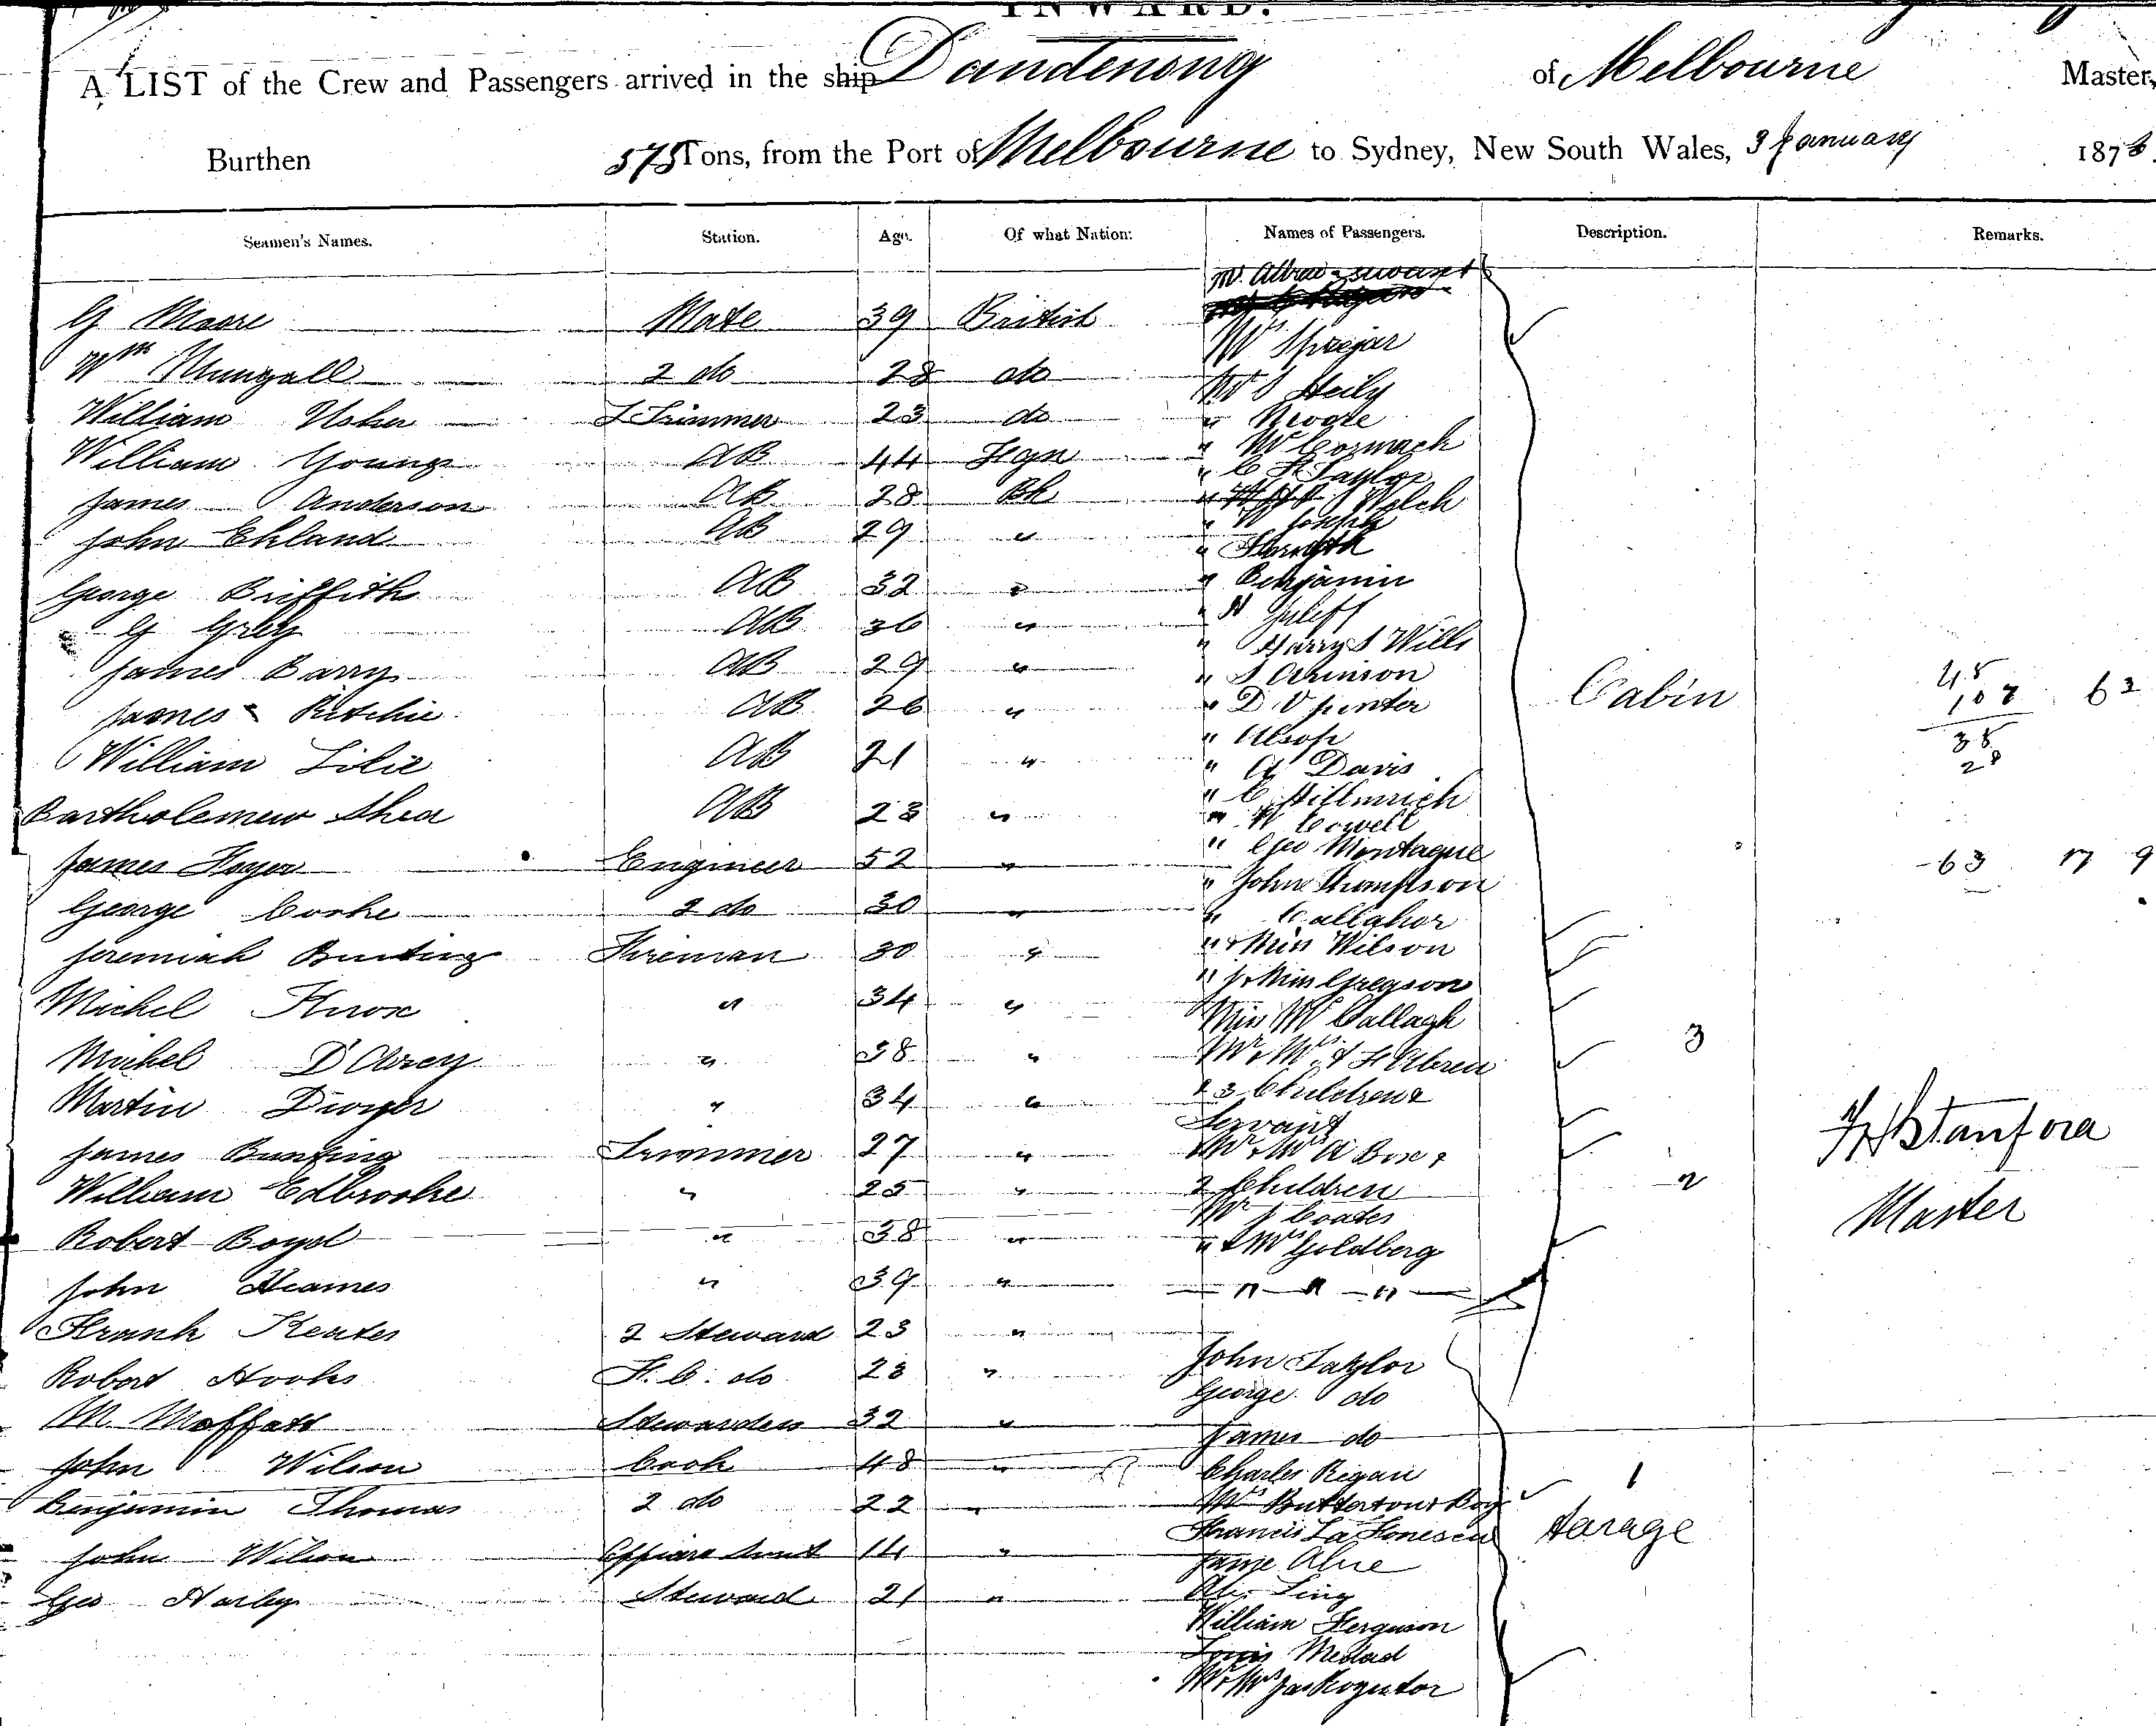 INWARD.
A LIST of the Crew and Passengers arrived in the ship Dandenong of Melbourne Master,
Burthen 575 Tons, from the Port of Melbourne to Sydney, New South Wales, 3 January 1876
Seamen's Names. Station. Age. Of what Nation: Names of Passengers. Description. Remarks.
G Moore Mate 39 British
Wm Mungall 2 do 28 do
William Usher Trimmer 23 do
William Young AB 44 Fgn Mr Cormack
C H Taylor
James Anderson AB 28 Bh Welch
W Joseph
John Ekland AB 29 " " Forsyth
George Griffith AB 32 " " Benjamin
G Grey AB 36 " " H Juleff
" Harry S Wills
James Barry AB 29 " " S Atkinson
James Ritchie AB 26 " " D V Punter Cabin
" Alsop
William Lilie AB 21 " " A Davis
Bartholemew Shea AB 23 "
" W Cowell
" Geo Montague
James Foyer Engineer 52 "
" John Thompson
George Cooke 2 do 30 " " Callaghor
Jeremiah Bunting Fireman 30 " " & Miss Wilson
" J & Miss Gregson
Michel Knox " 34 " Miss Mc Callagh
Michel D'Arcy " 38 " Mr & Mrs & F Abren 3
Martin Dwyer " 34 " & 3 Children &
Servant
James Bunting Trimmer 27 " Mr & Mrs A Box &
William Edbrooke " 25 " 2 Children 2
Mr J Coates
Robert Boyd " 38 " " & Mrs Goldberg
John Heames " 39 " " " "
Frank Keates 2 Steward 23 "
Robert Hooks F. C. do 23 " John Taylor
George do
M Moffatt Stewardess 32 "
James do
John Wilson Cook 48 " Charles Regan 1
Benjamin Thomas 2 do 22 " Mrs Butterton & Boy
Francis La Fonescu Starage
John Wilson 14 "
Ah Ling
Geo Harley Steward 21 "
William Ferguson
Louis Medad
Mr & Mrs Jas
Stanford
Master